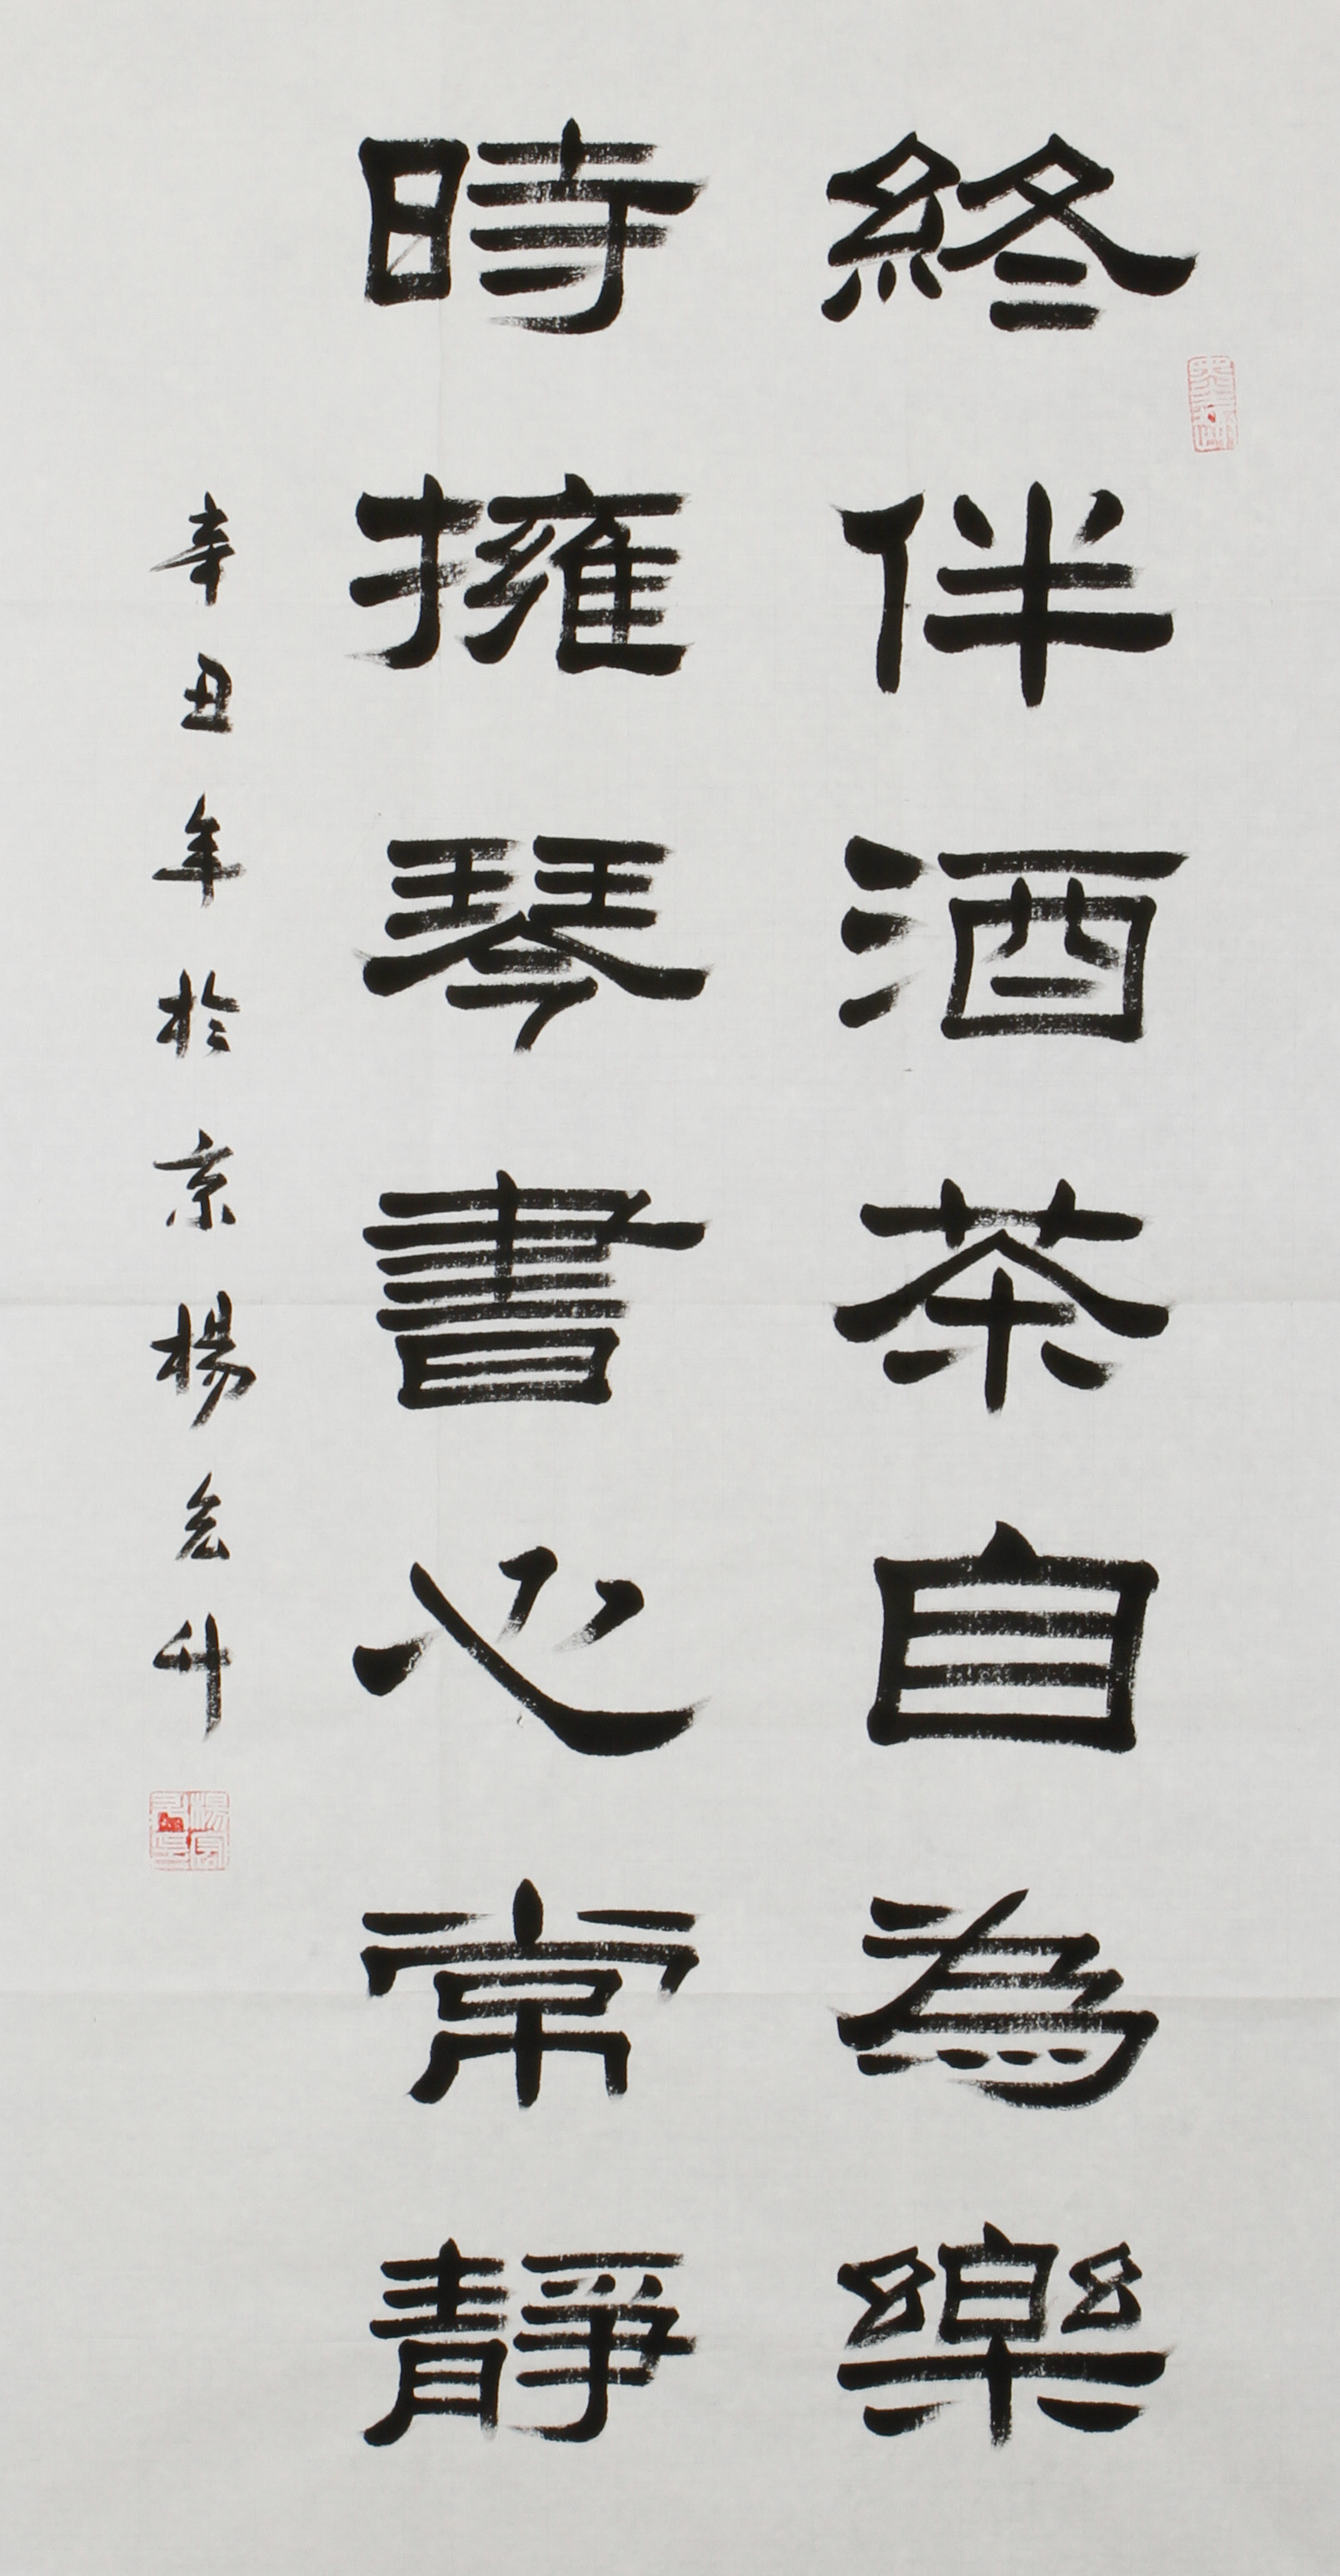 終伴酒茶自為樂
時擁琴書心常靜
辛丑年於京楊宏升